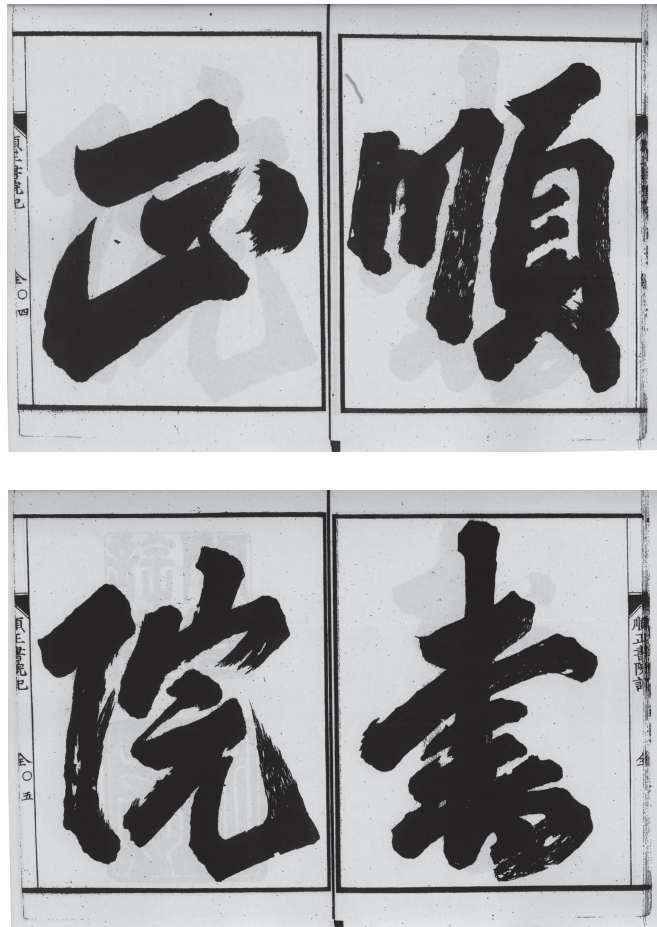 順
正
順正書院記
全〇四
書
順正書院記
全
院
順正書院記
全〇五